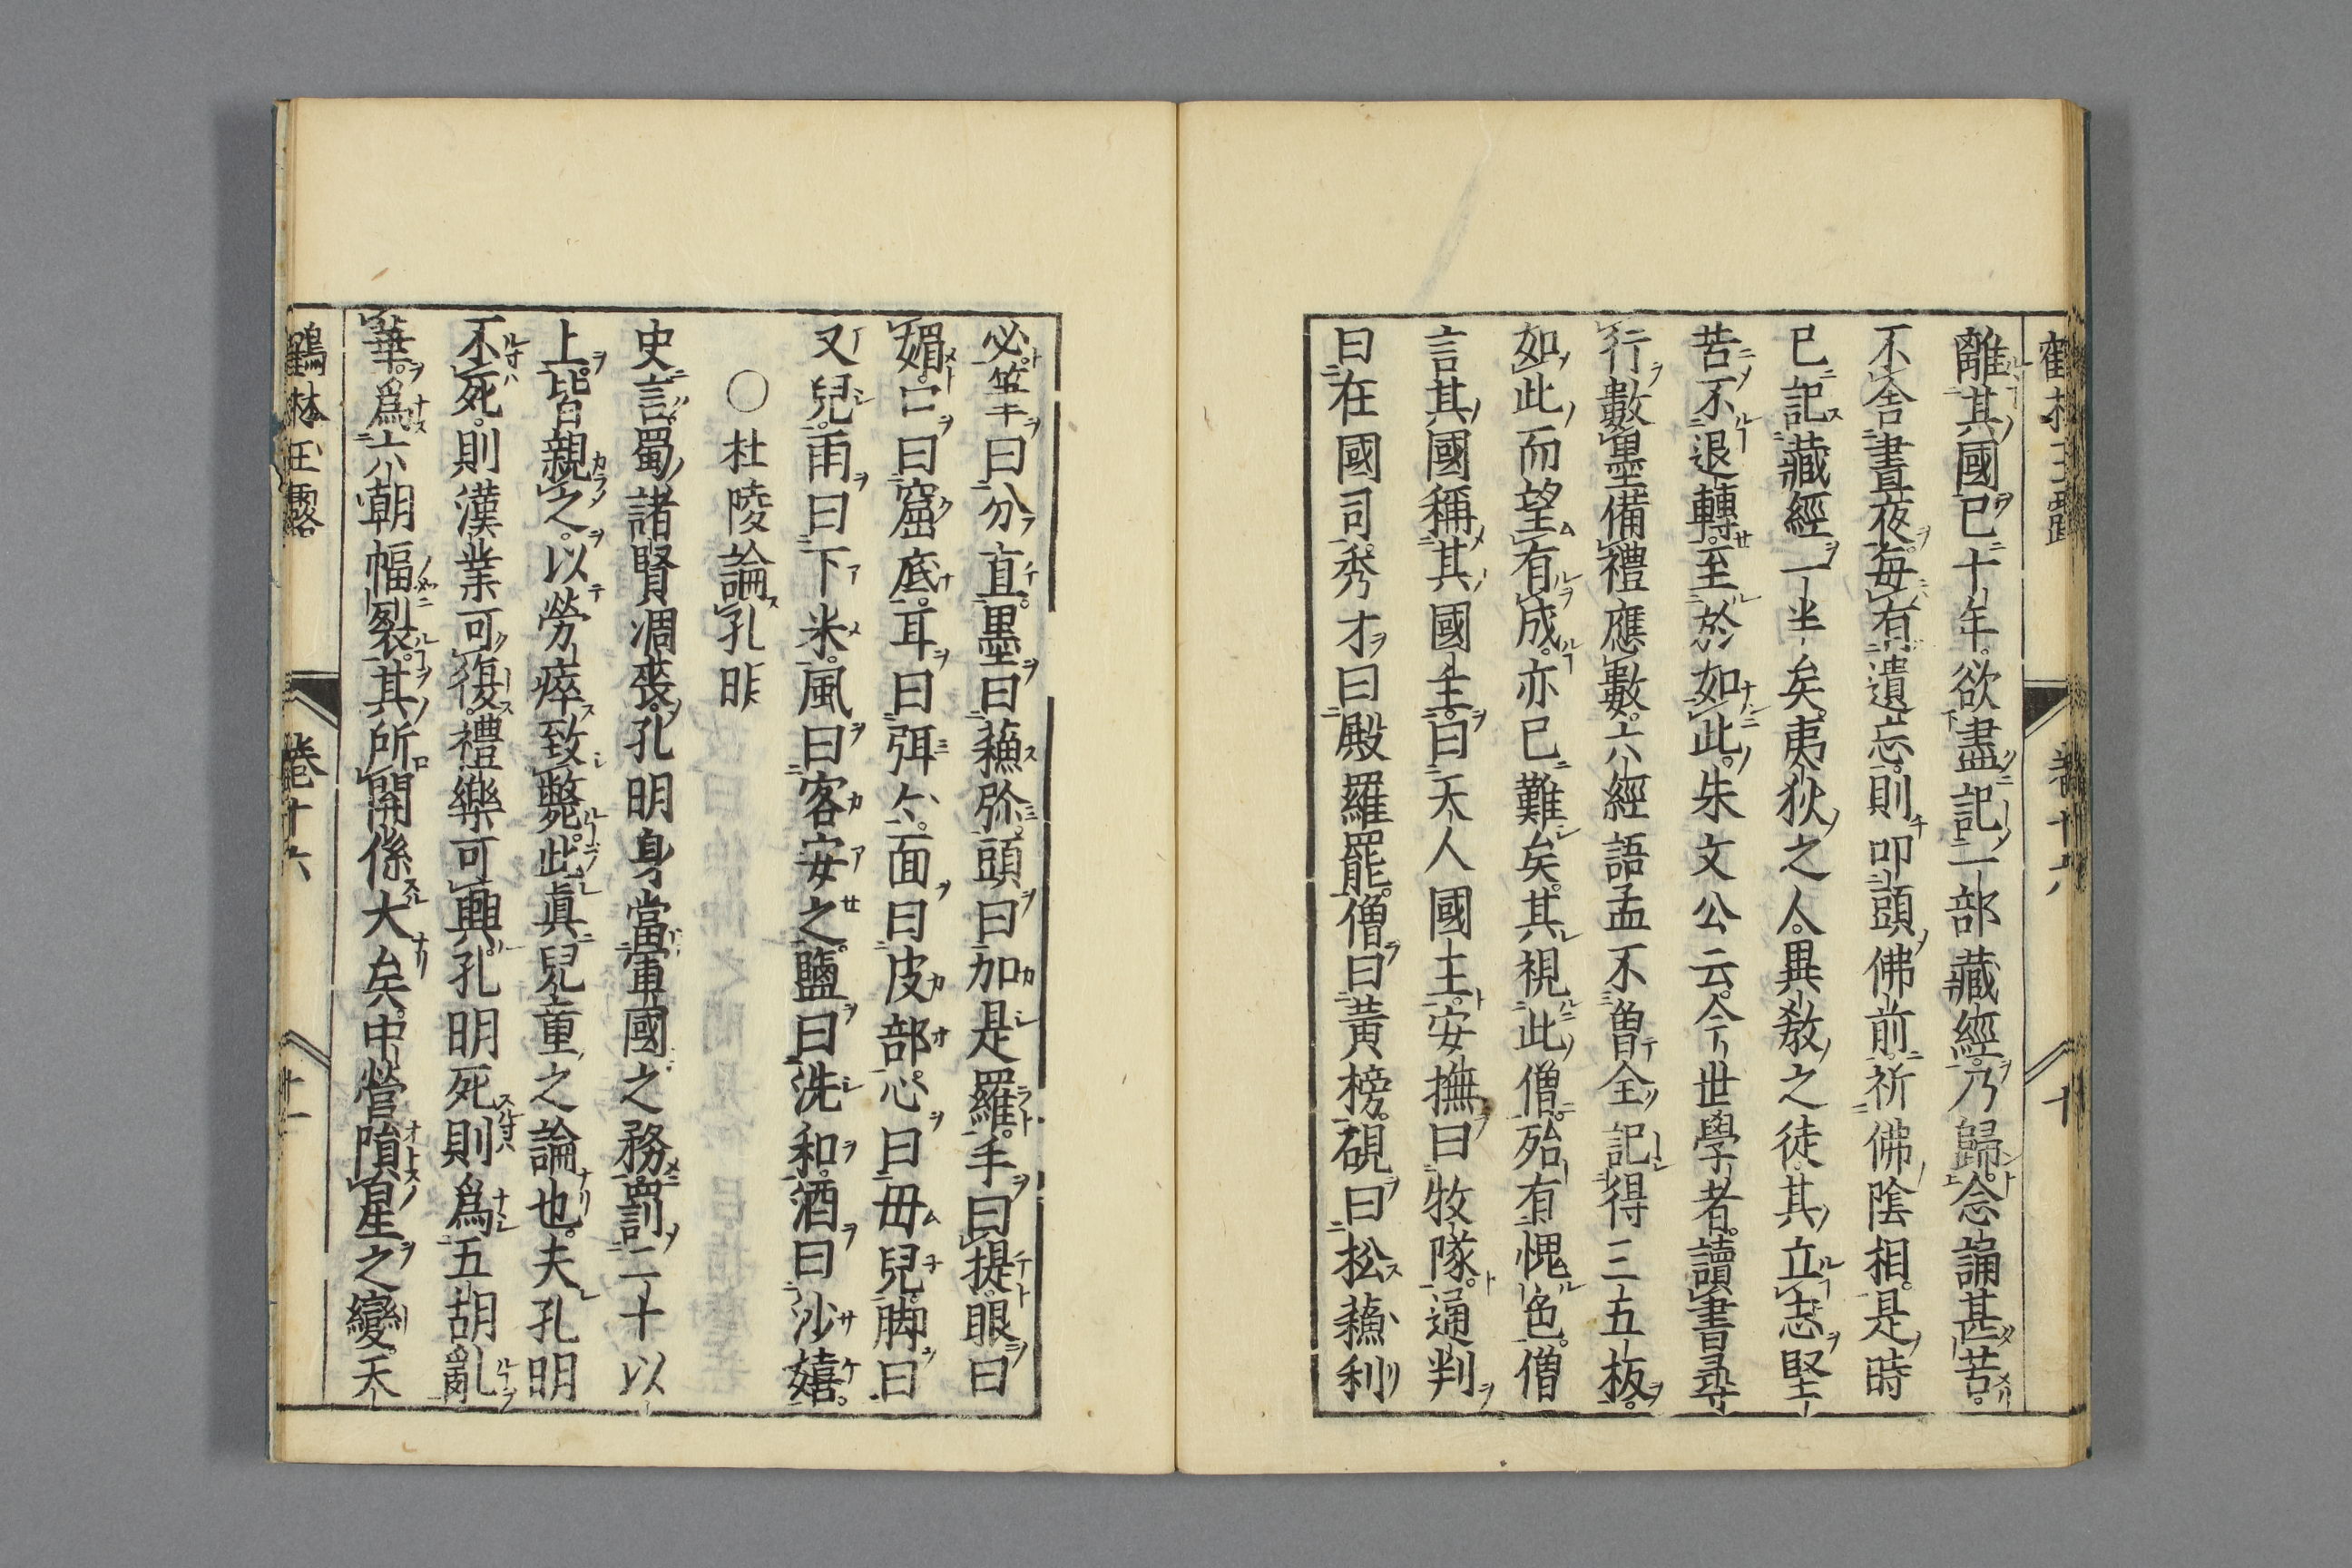 鶴林玉露 卷十六 十
離其國已十年欲盡記一部藏經乃歸念誦甚苦
不舍晝夜每有遺忘則叩頭佛前祈佛陰相是時
已記藏經一半矣夷狄之人異教之徒其立志堅
苦不退轉至於如此朱文公云今世學者讀書尋
行數墨備禮應數六經語孟不曽全記得三五板
如此而望有成亦已難矣其視此僧殆有愧色僧
言其國稱其國主曰天人國王安撫曰牧隊通判
曰在國司秀才曰殿羅罷僧曰黃榜硯曰松蘓利
必筆曰分直墨曰蘓弥頭曰加是羅手曰提眼曰
媚口曰窟底耳曰弭〻面曰皮部心曰毋兒脚曰
又兒雨曰下米風曰客安之鹽曰洗和酒曰沙嬉
○杜陵論孔明
史言蜀諸賢凋喪孔明身當軍國之務罰二十以
上皆親之以勞瘁致斃此眞兒童之論也夫孔明
不死則漢業可復禮樂可興孔明死則爲五胡亂
華爲六朝幅裂其所關係大矣中營隕星之變天
鶴林玉露 卷十六 十一